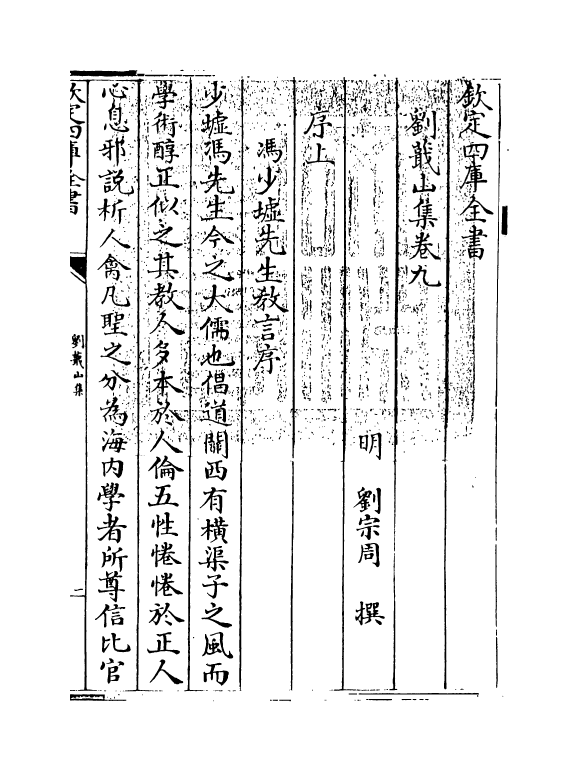 欽定四庫全書
劉蕺山集卷九
明 劉宗周 撰
序上
馮少墟先生教言序
少墟馮先生今之大儒也倡道關西有橫渠子之風而
學術醇正似之其教人多本於人倫五性惓惓於正人
心息邪說析人禽凡聖之分為海内學者所尊信比官
欽定四庫全書
劉蕺山集